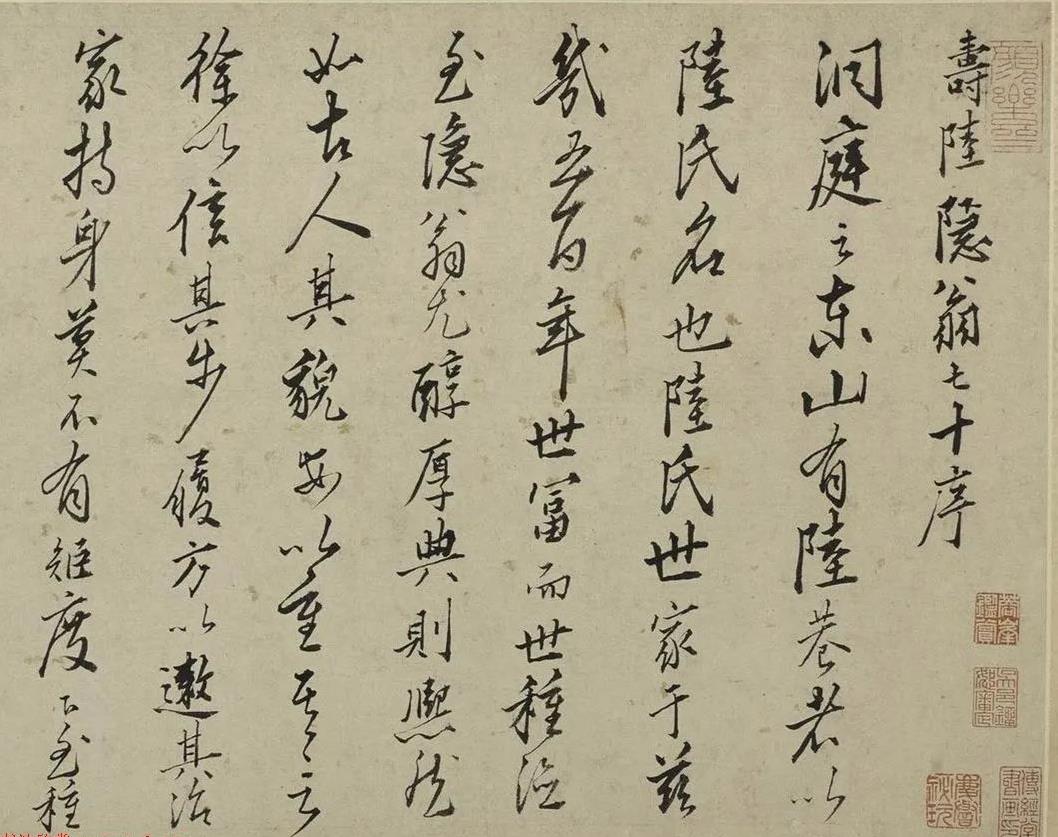 壽陸隱翁七十序
洞庭之東山有陸巷者以
陸氏名也陸氏世家于茲
幾五百年世富而世種德
至隱翁尤醇厚典則熙然
如古人其貌安以重其言
徐以信其步履方以其治
家持身莫不有矩度下至種